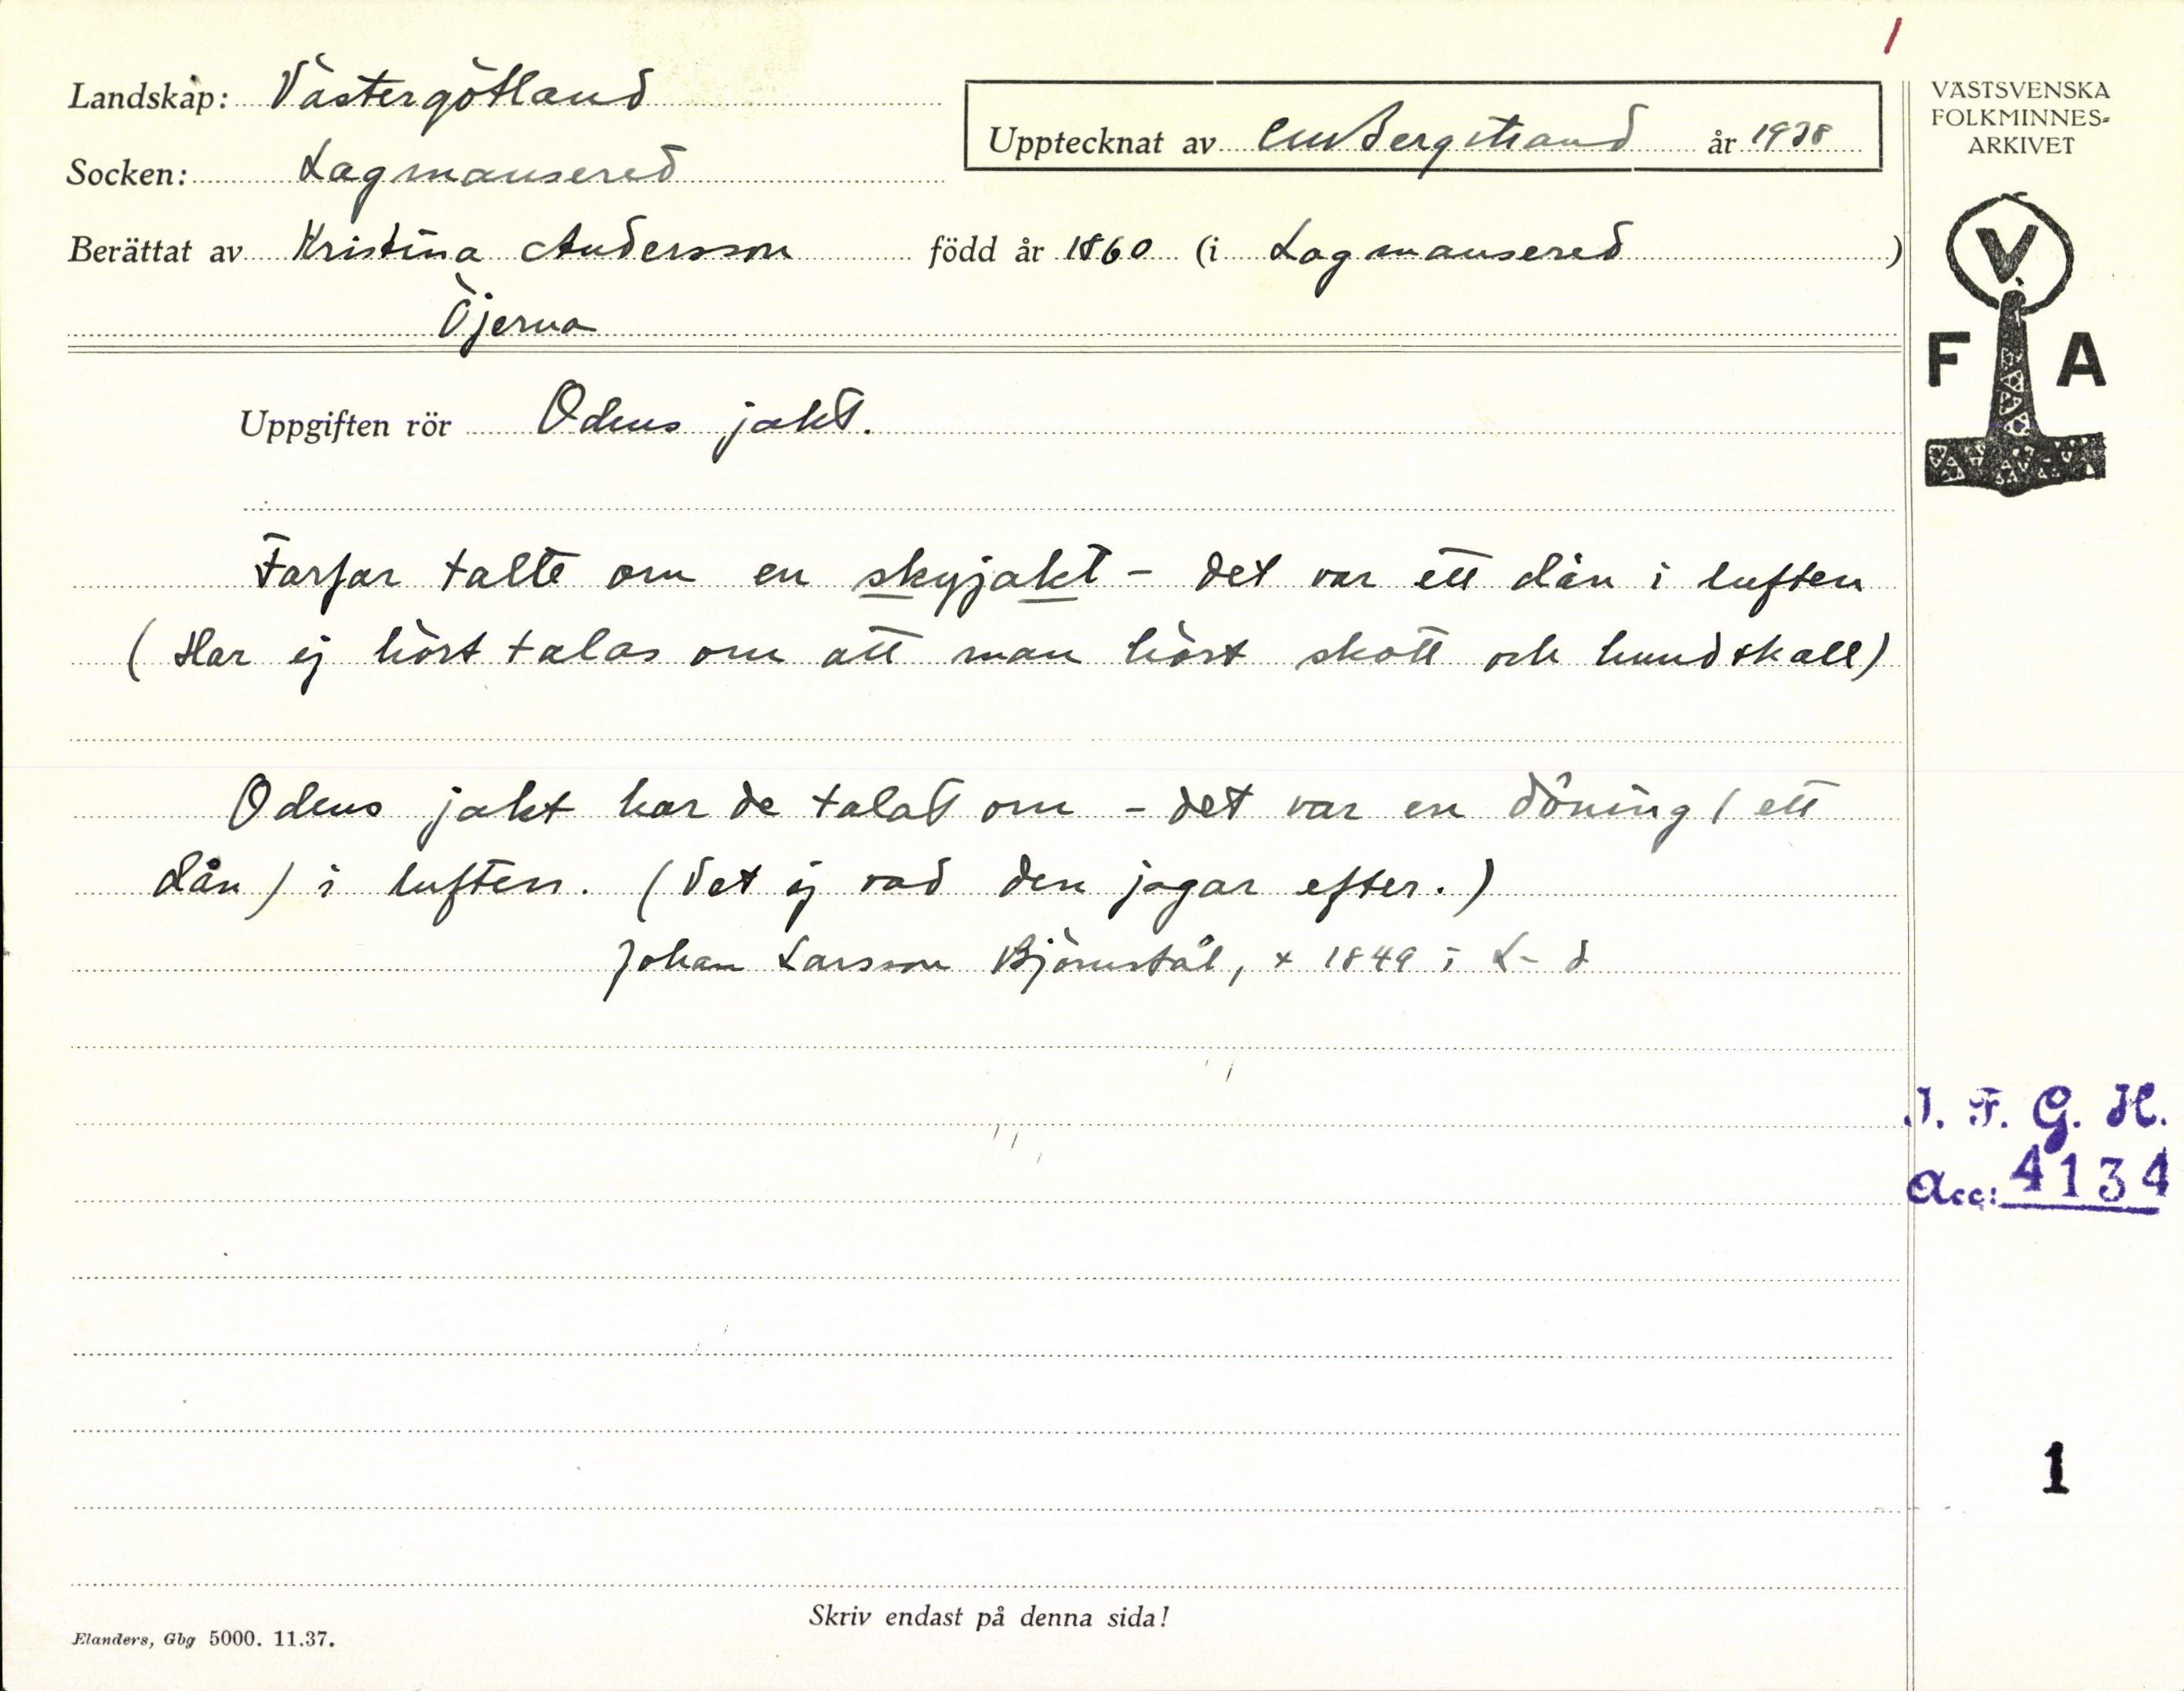 1
Landskap: Västergötland
Upptecknat av CM Bergstrand år 1938
Socken: Lagmansered
Berättat av Kristina Andersson född år 1860 (i Lagmansered)
Öjerna
VÄSTSVENSKA
FOLKMINNES-
ARKIVET
V
F A
Uppgiften rör Odens jakt.
Farfar talte om en skyjakt - det var ett dån i luften
( Har ej hört talas om att man hört skott och hundskall)
Odens jakt har de talat om - det var en döning ( ett
dån ) i luften. ( Vet ej vad den jagar efter. )
Johan Larsson Björnstål, x 1849 i L-d
I. F. G. H.
Acc: 4134
1
Skriv endast på denna sida!
Elanders, Gbg 5000. 11.37.